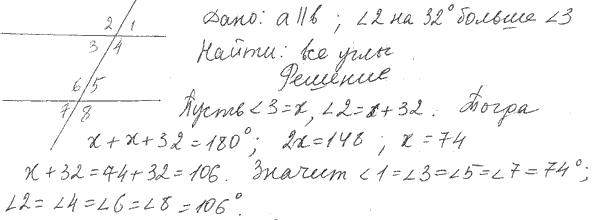 2 1
3 4
6 5
7 8
Дано: a∥b ; ∠2 на 32° больше ∠3
Найти: все углы
Решение
Пусть ∠3=x, ∠2=x+32. Тогда
x+x+32=180°; 2x=148 ; x=74
x+32=74+32=106. Значит ∠1=∠3=∠5=∠7=74°;
∠2=∠4=∠6=∠8=106°.